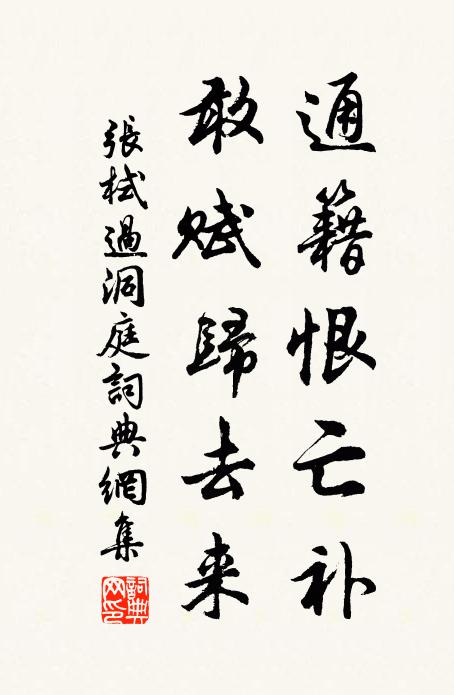 通籍恨亡补
敢赋歸去来
張栻過洞庭詞典網集
詞典网印